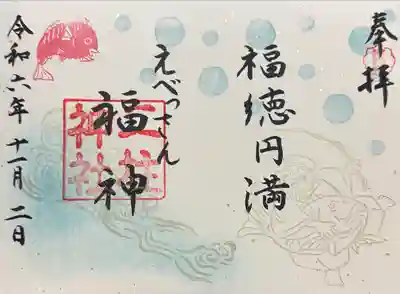 奉拝
福徳円満
えべっさん
福神
神社
令和六年十一月二日